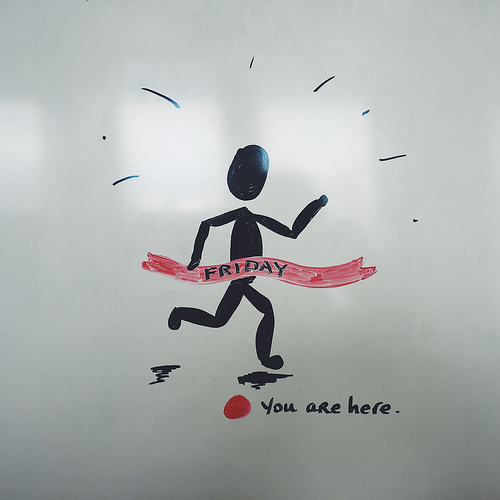 FRIDAY
You are here.